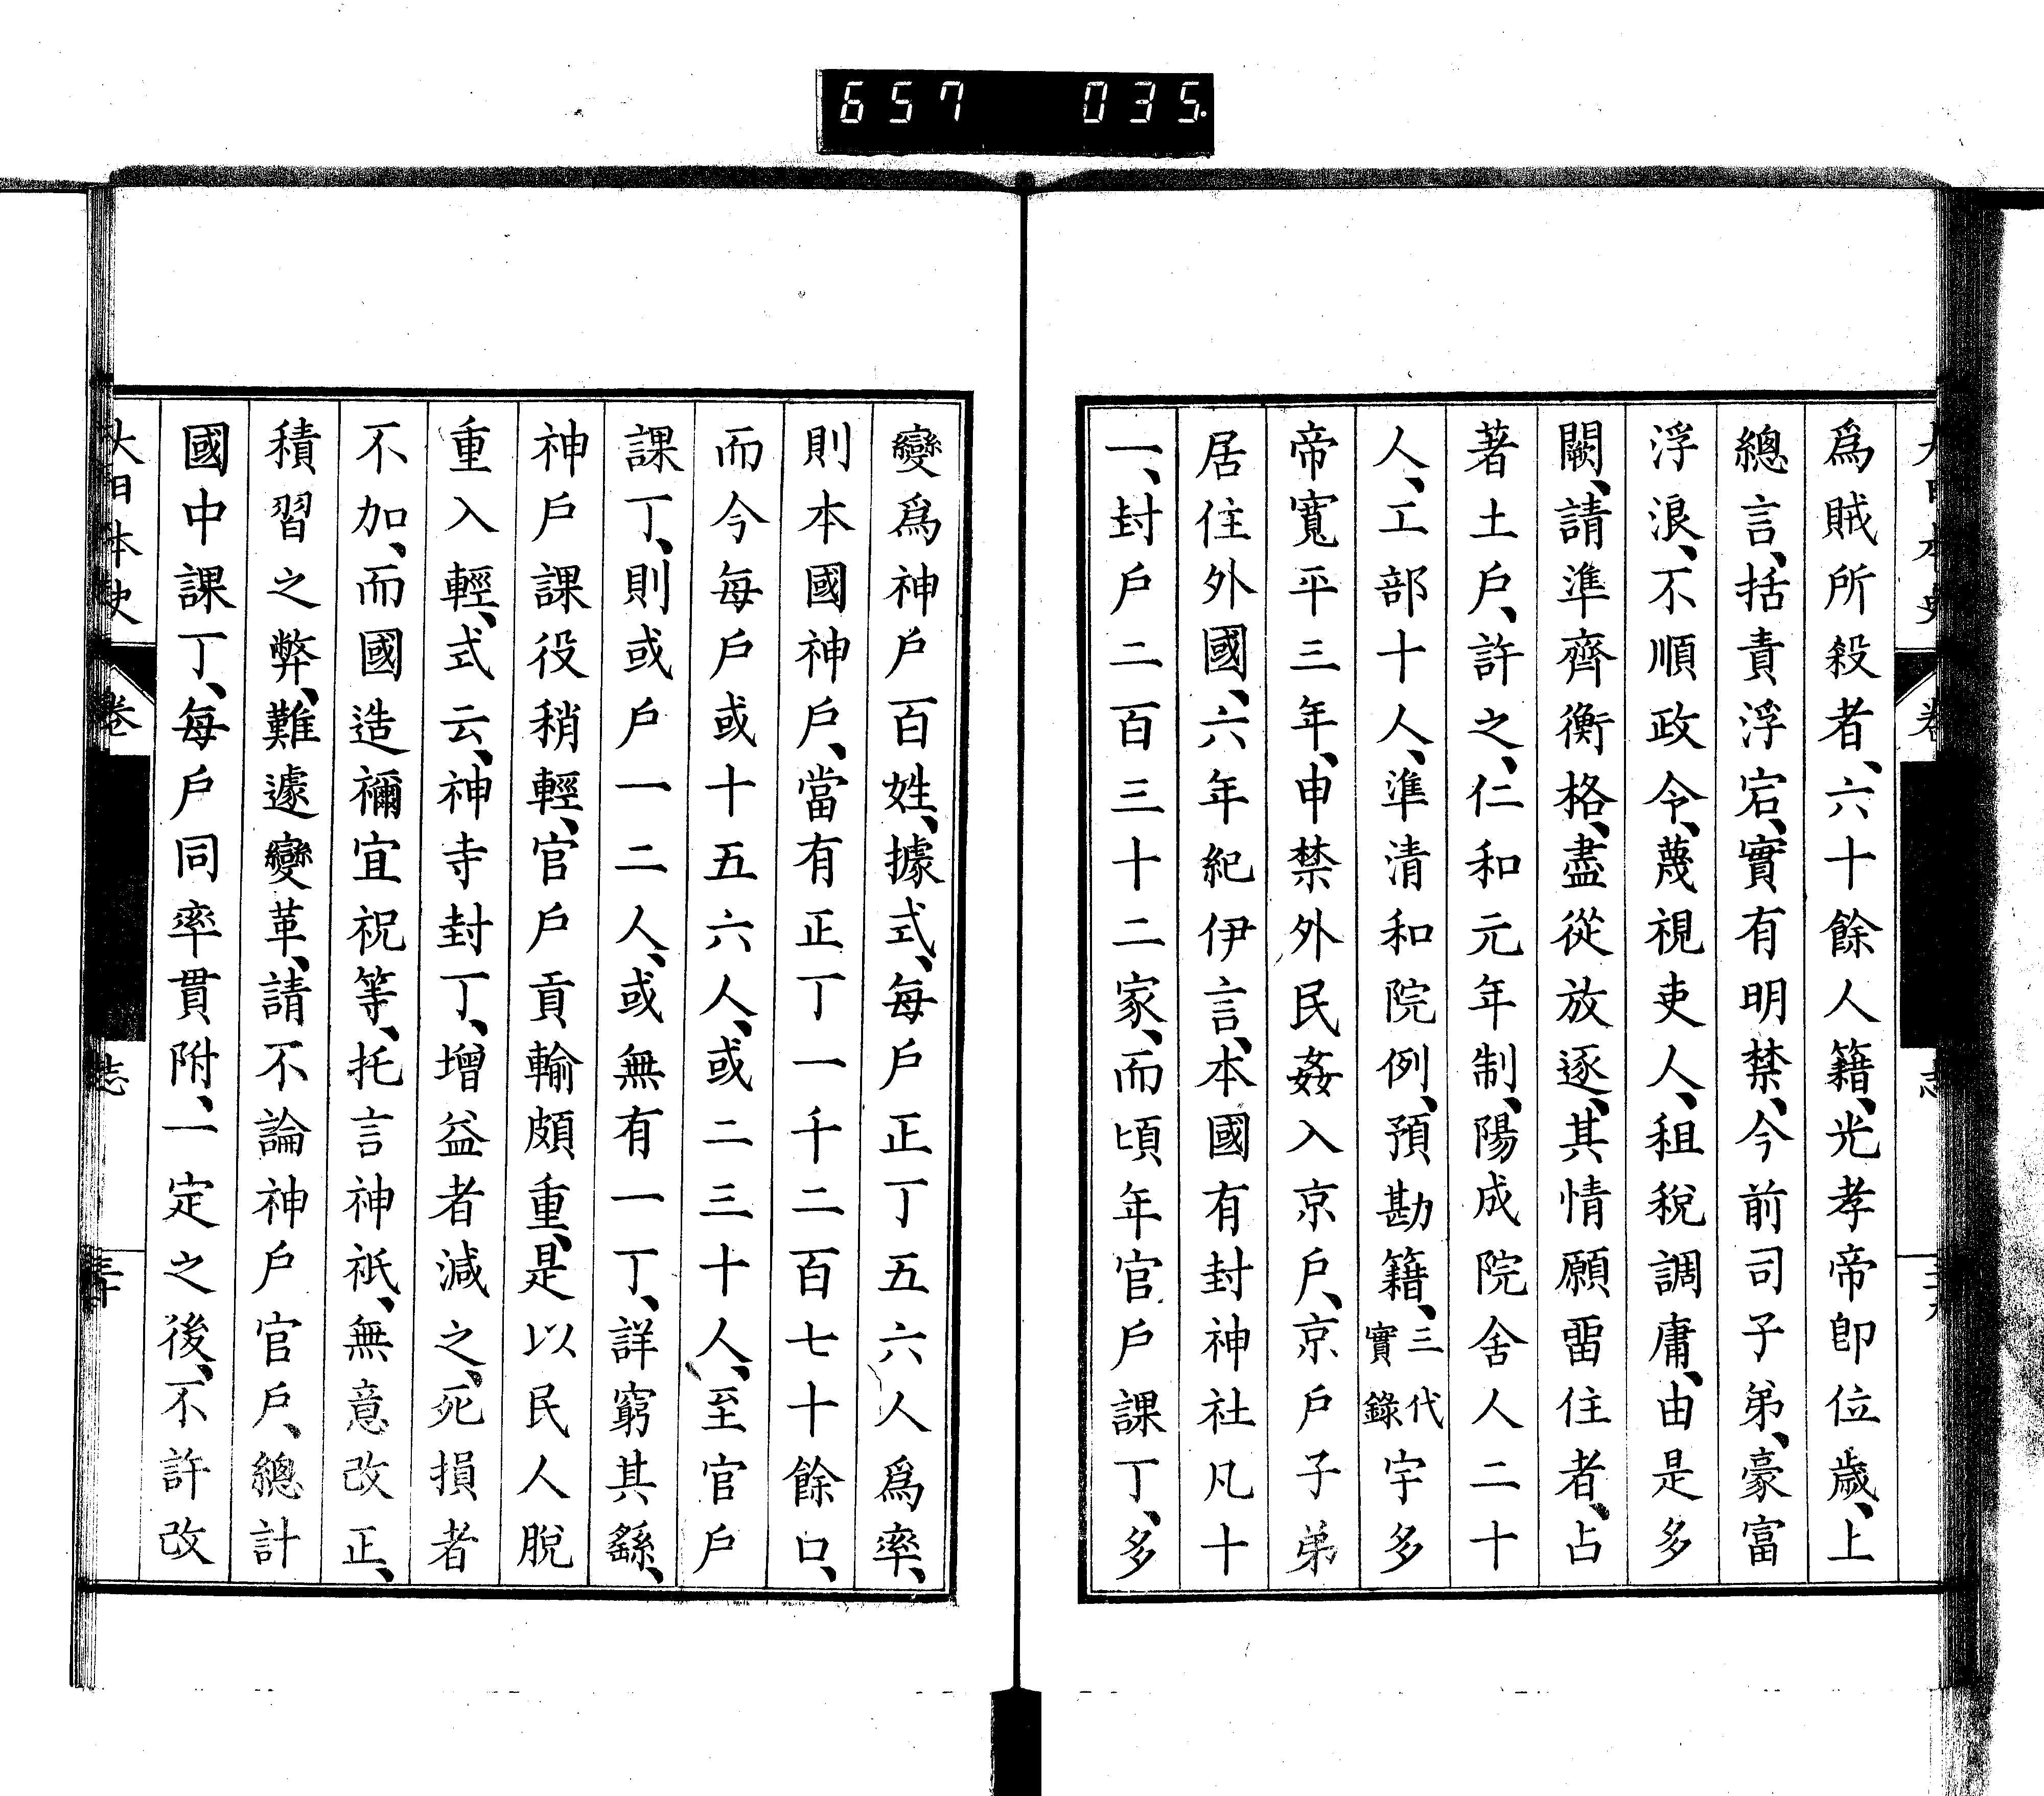 657 035.
爲賊所殺者、六十餘人籍、光孝帝卽位歲、上
總言、括責浮宕、實有明禁、今前司子弟、豪富
浮浪、不順政令、蔑視吏人、租稅調庸、由是多
闕、請準齊衡格、盡從放逐、其情願畱住者、占
著土戶、許之、仁和元年制、陽成院舍人二十
人、工部十人、準清和院例、預勘籍、三代實錄宇多
帝寬平三年、申禁外民姦入京戶、京戶子弟
居住外國、六年紀伊言、本國有封神社凡十
一、封戶二百三十二家、而頃年官戶課丁、多
變爲神戶百姓、據式、每戶正丁五六人爲率、
則本國神戶、當有正丁一千二百七十餘口、
而今每戶或十五六人、或二三十人、至官戶
課丁、則或戶一二人、或無有一丁、詳窮其繇、
神戶課役稍輕、官戶貢輸頗重、是以民人脫
重入輕、式云、神寺封丁、增益者減之、死損者
不加、而國造禰宜祝等、托言神祇、無意改正、
積習之弊、難遽變革、請不論神戶官戶、總計
國中課丁、每戶同率貫附、一定之後、不許改
大日本史 卷 志 三十